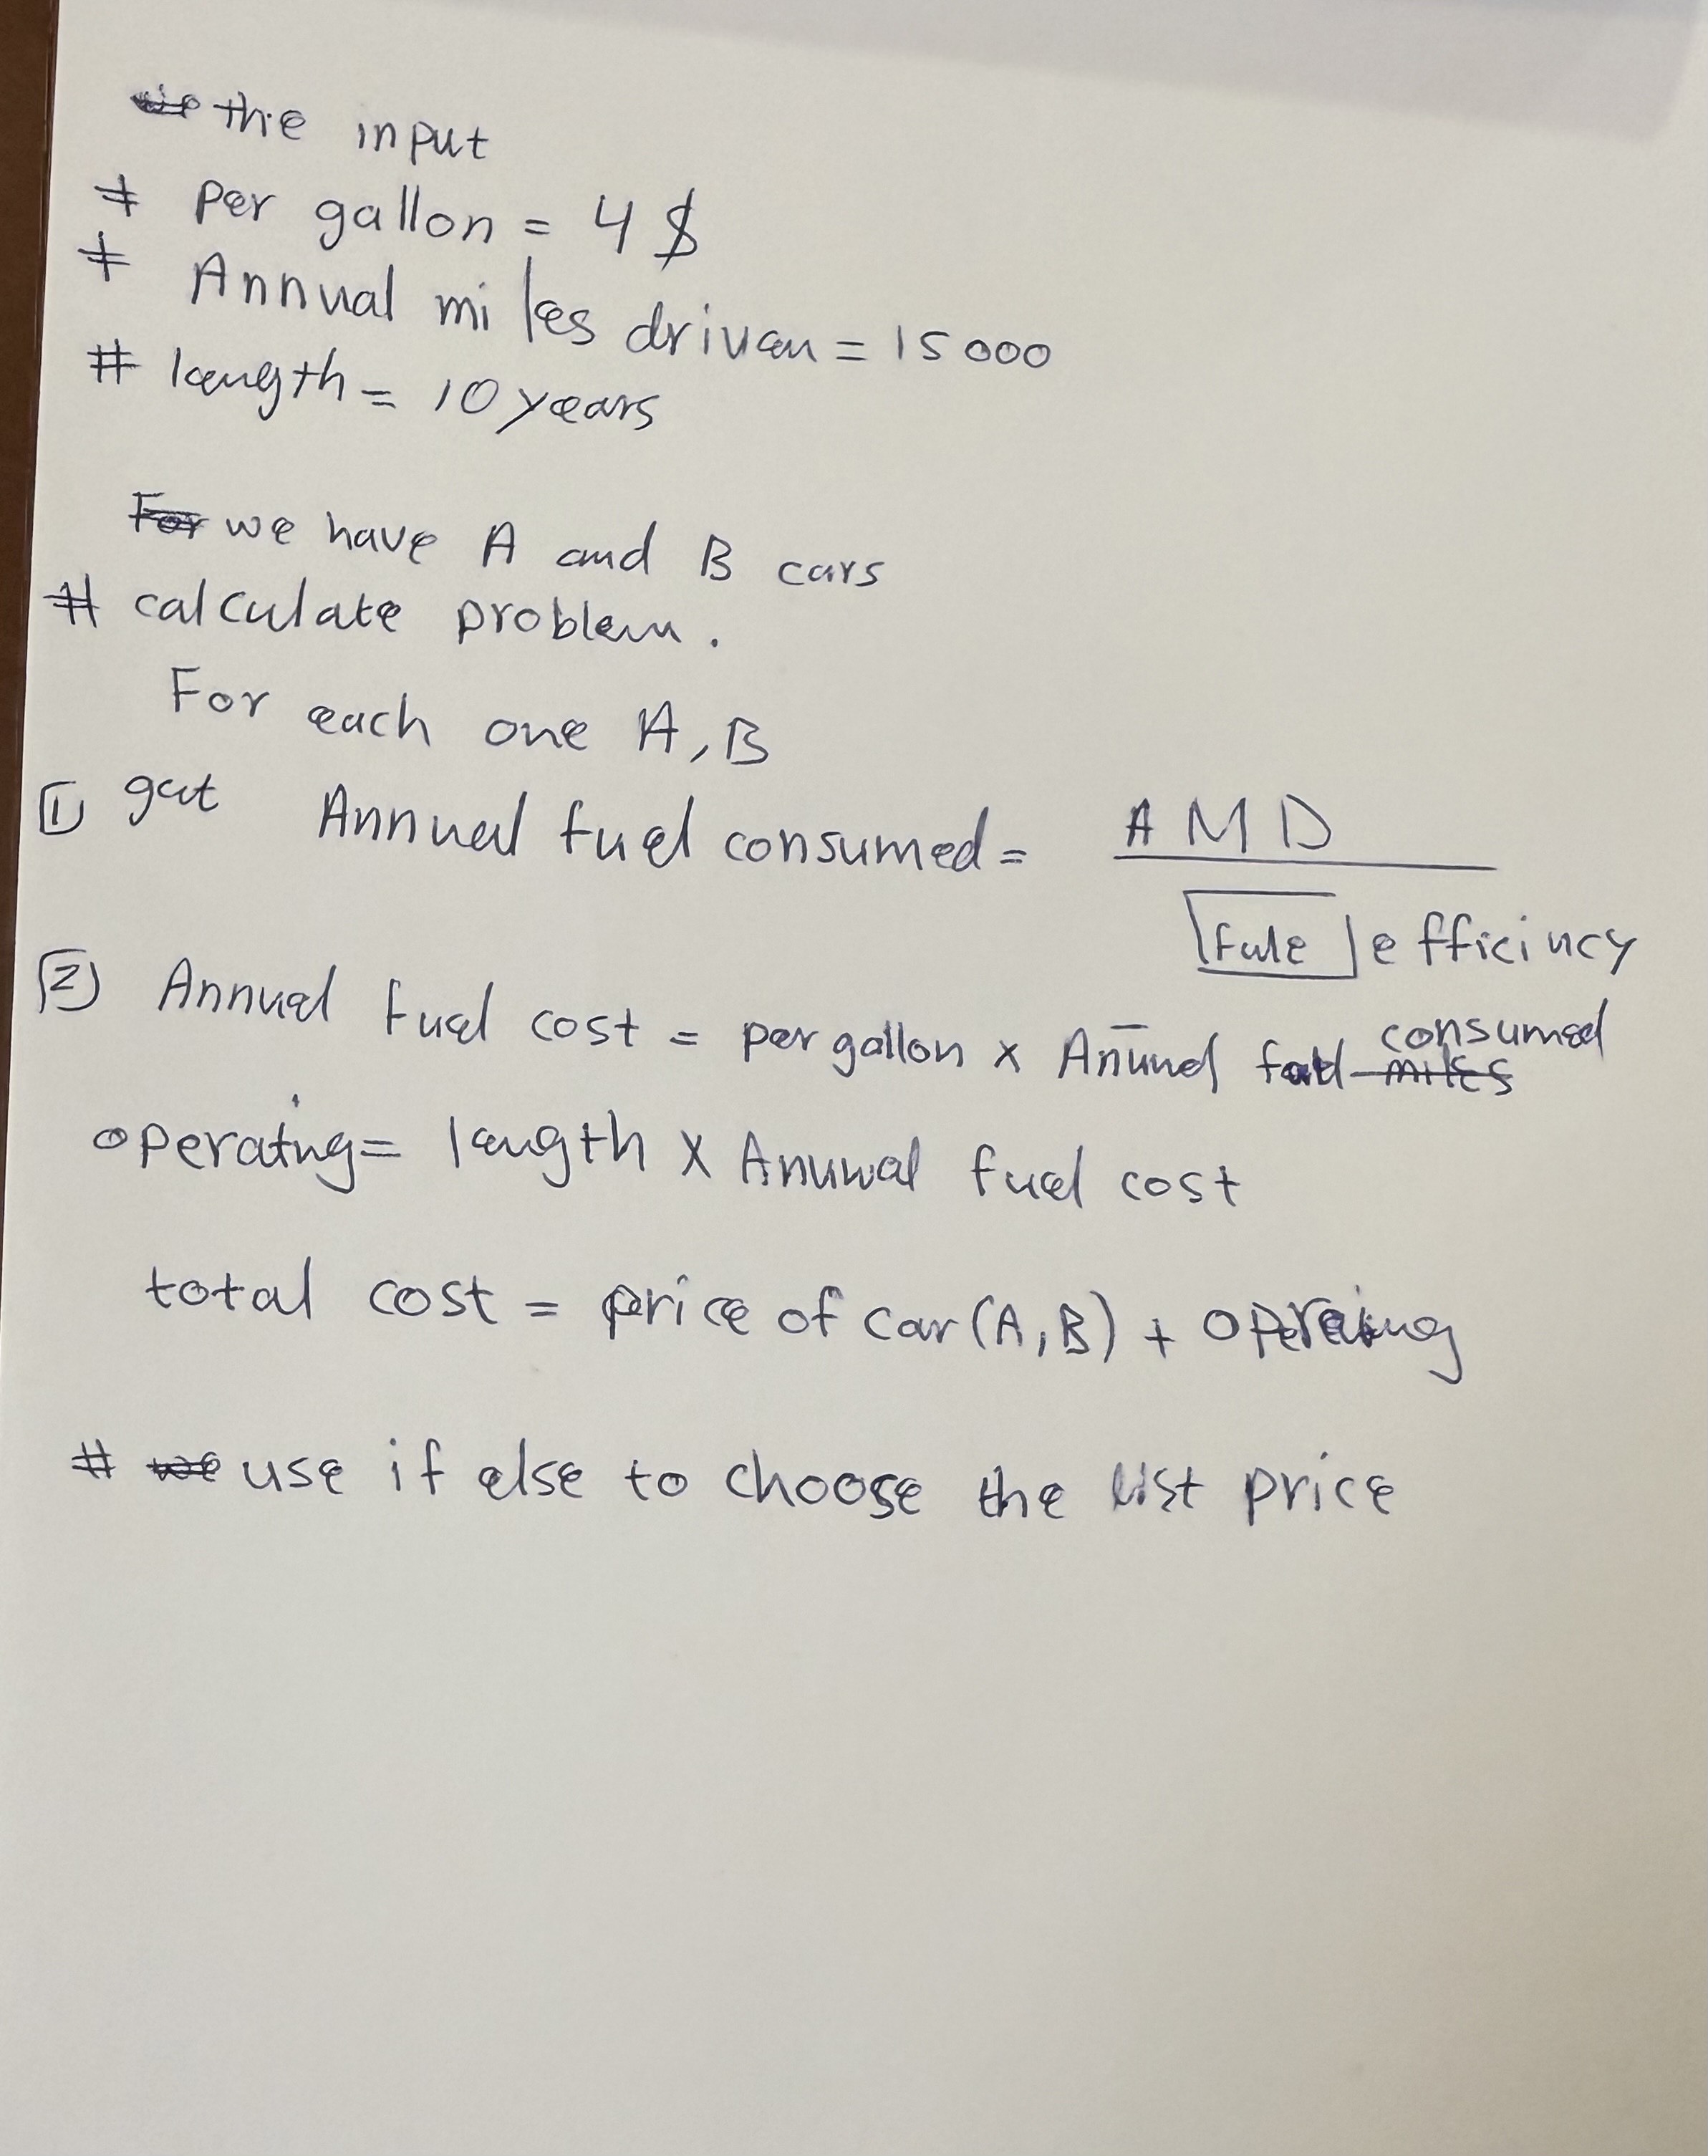 the input
# Per gallon = 4 $
# Annual miles driven = 15000
# length = 10 years
For we have A and B cars
# calculate problem.
For each one A, B
1 get Annual fuel consumed = AMD
fule efficincy
2 Annual fuel cost = per gallon x Anunal fuel miles consumed
operating = length x Anuwal fuel cost
total cost = price of car (A, B) + Operaing
# we use if else to choose the list price